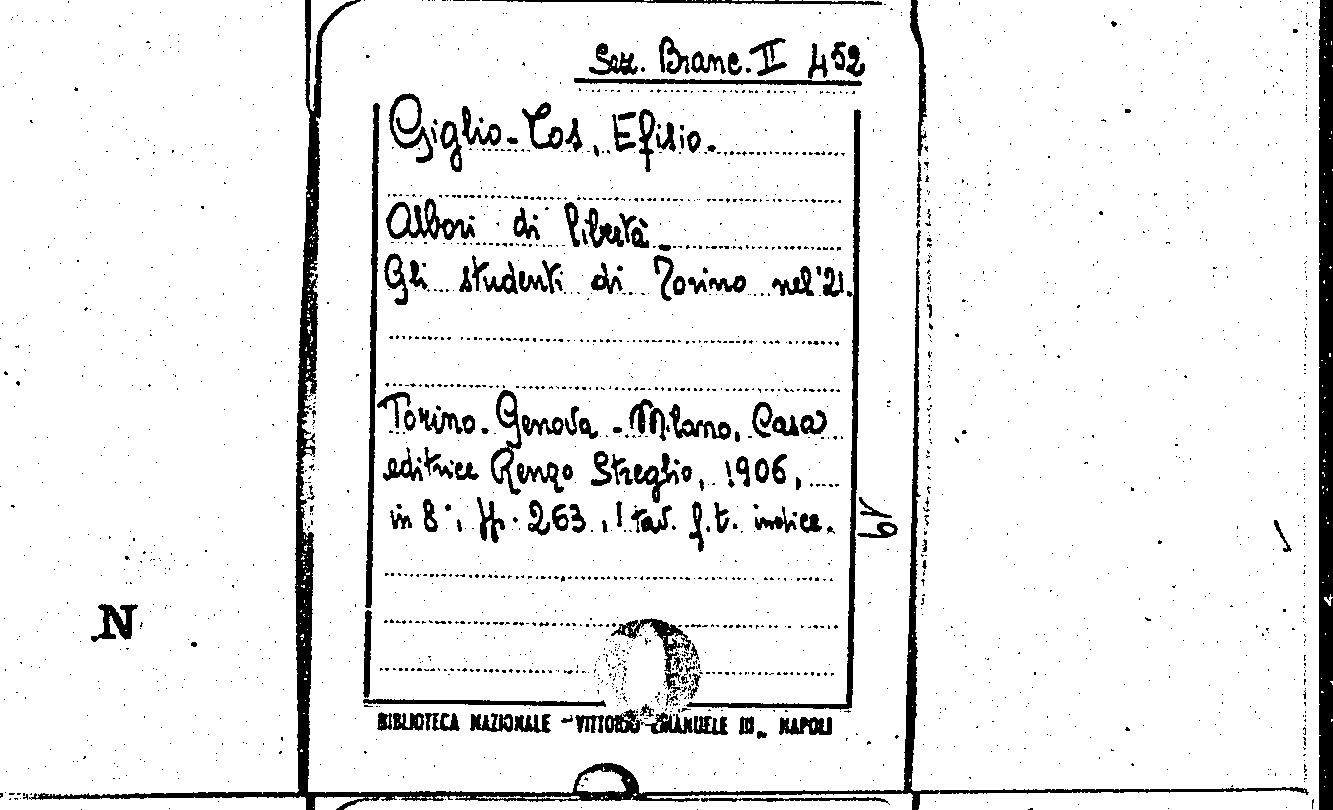 Sez. Branc. II 452
Giglio-Tos, Efisio.
Albori di libertà -
Gli studenti di Torino nel '21.
Torino - Genova - Milano, Casa
editrice Renzo Streglio, 1906,
in 8°, pp. 263, 1 tav. f.t. indice.
BIBLIOTECA NAZIONALE "VITTORIO EMANUELE III„ NAPOLI
N